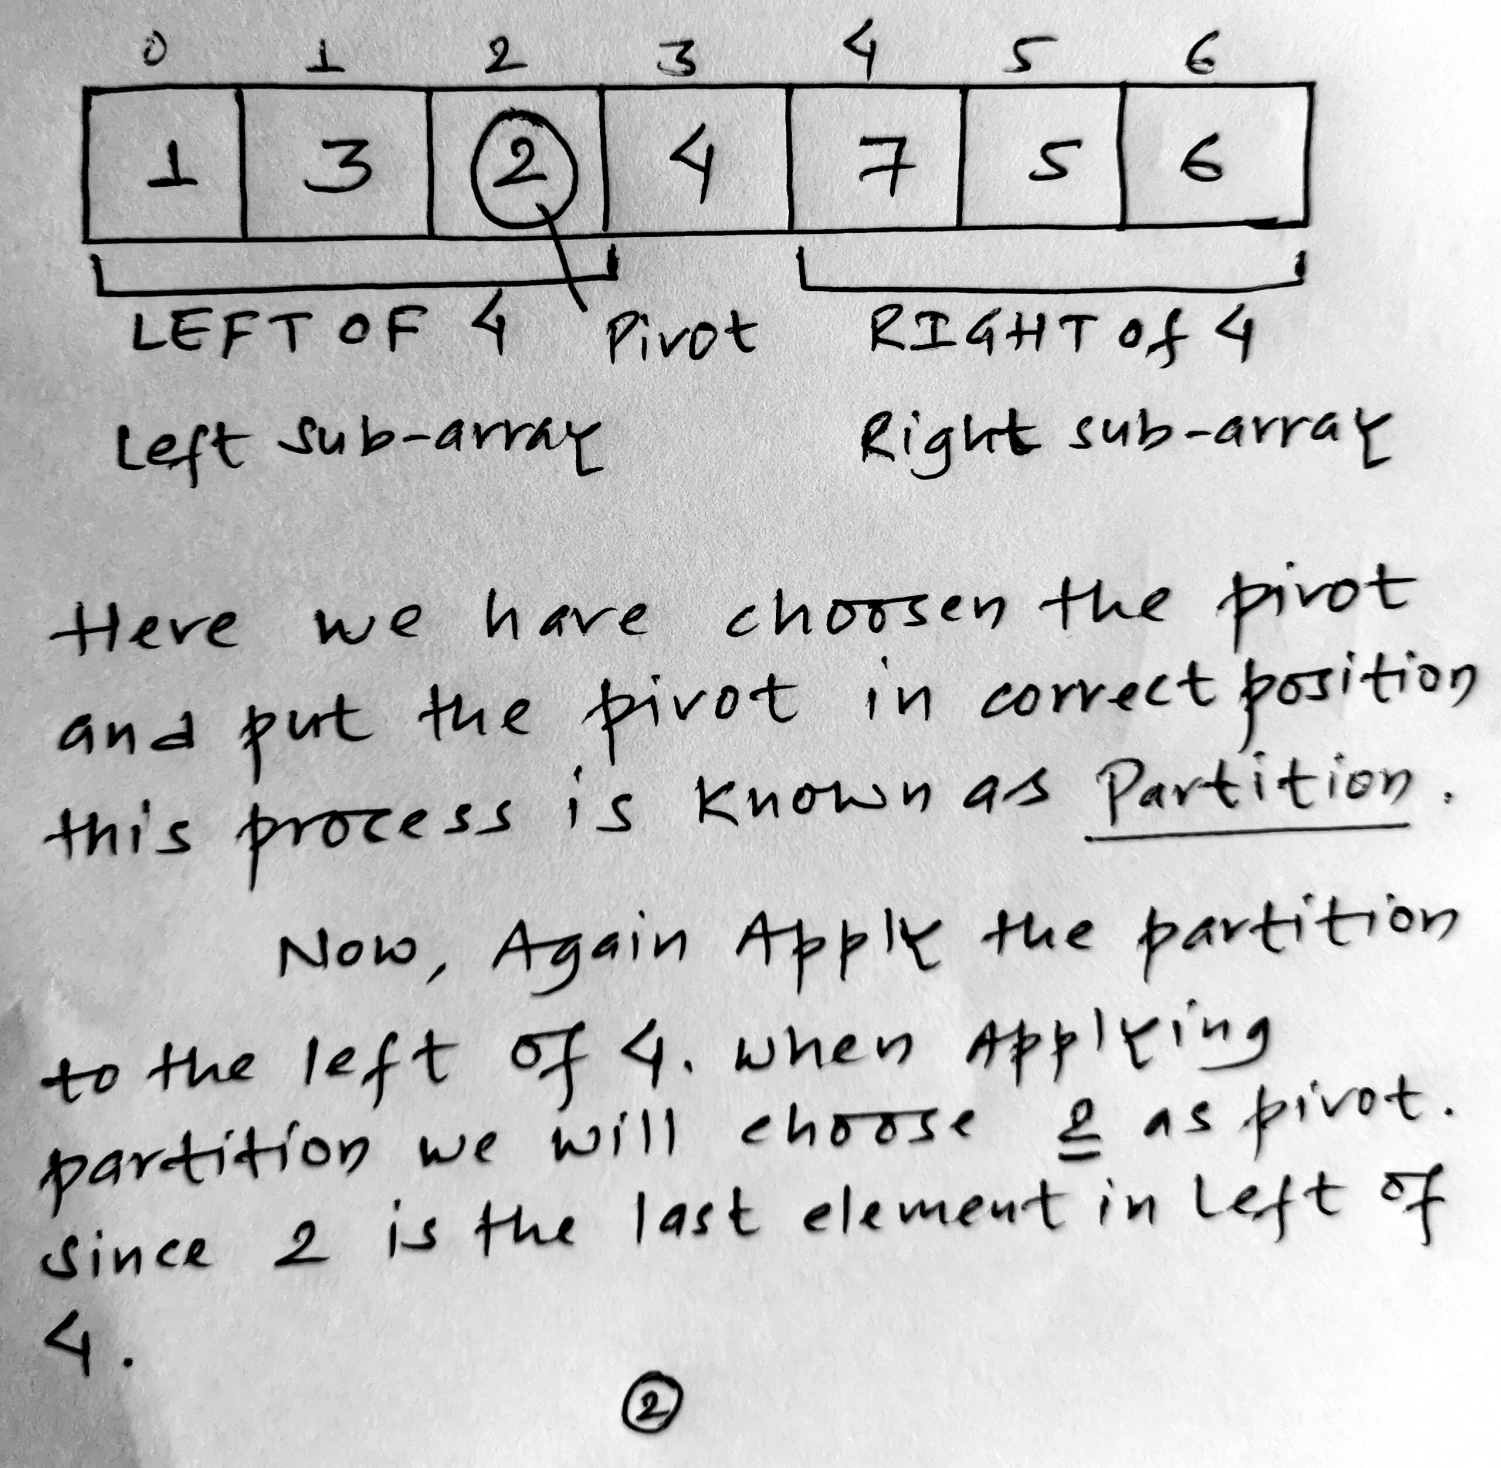 0 1 2 3 4 5 6
1 3 2 4 7 5 6
LEFT OF 4 Pivot RIGHT of 4
Left sub-array Right sub-array
Here we have choosen the pivot
and put the pivot in correct position
this process is known as Partition.
Now, Again Apply the partition
to the left of 4. when Applying
partition we will choose 2 as pivot.
since 2 is the last element in left of
4.
2